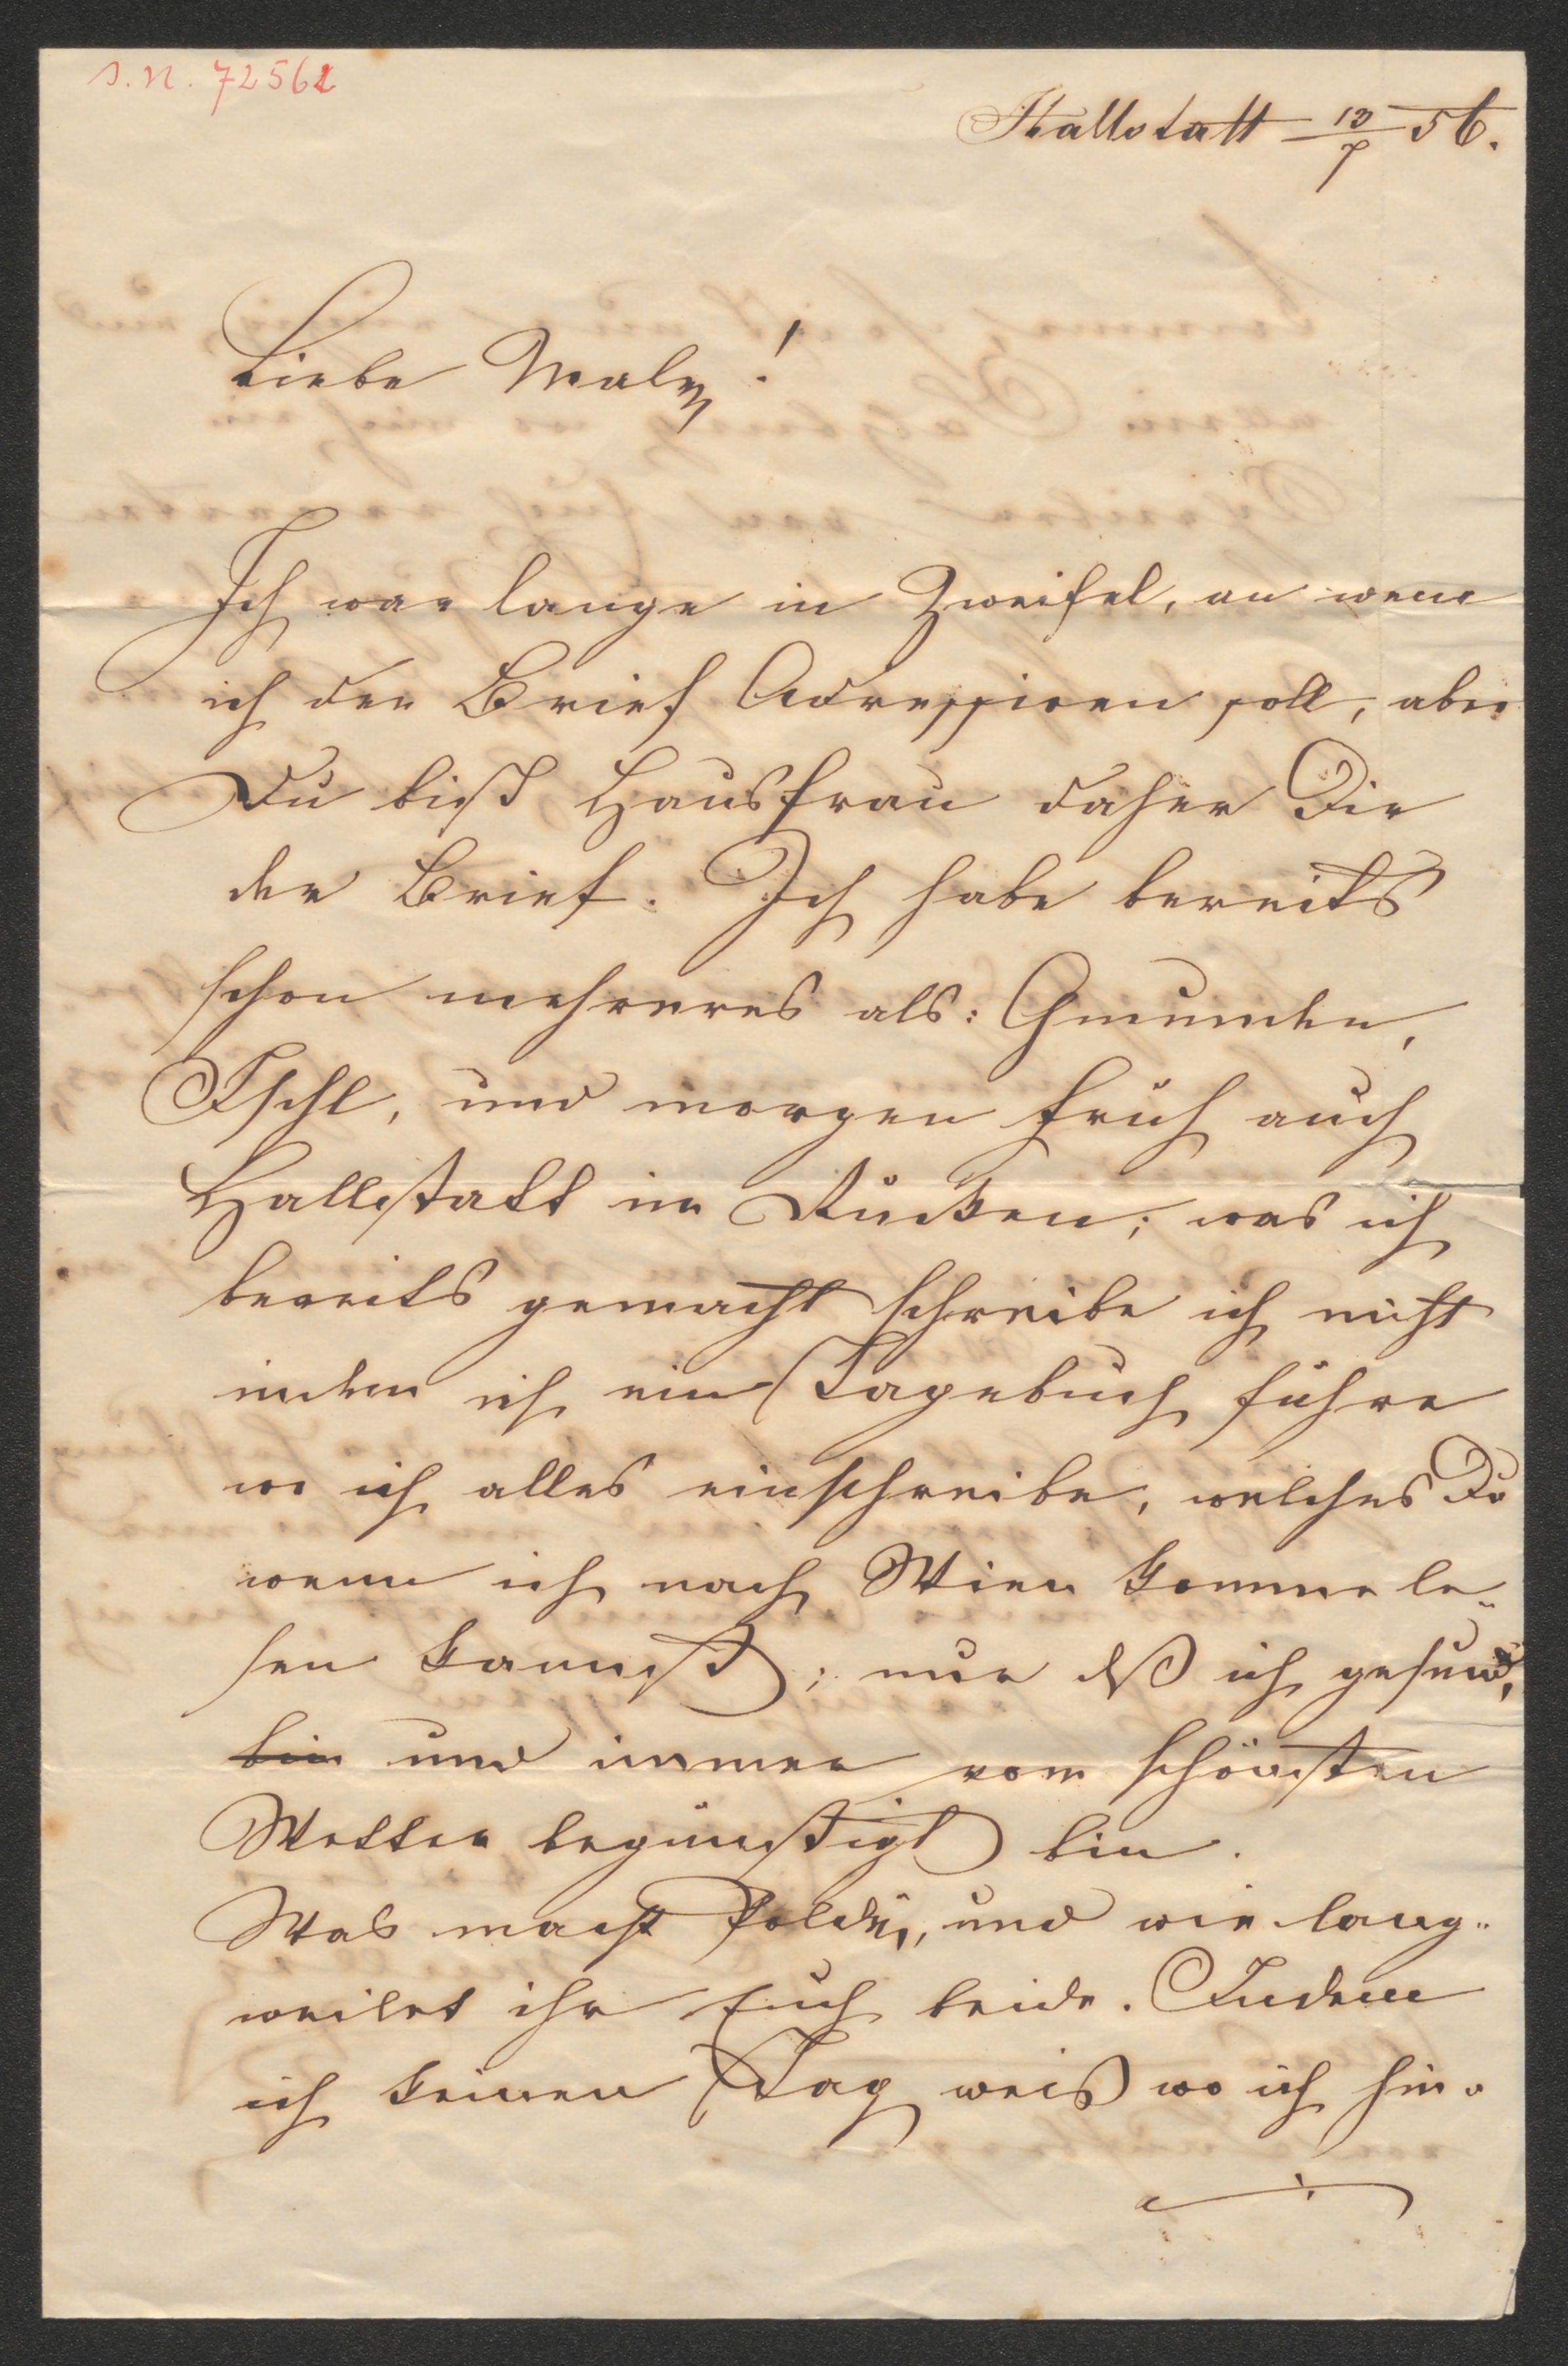 J.N. 72561
Hallstatt 13/7 56.
Liebe Maly!
Ich war lange in Zweifel, an wem
ich den Brief Adressiren soll, aber
Du bist Hausfrau daher Dir
der Brief. Ich habe bereits
schon mehreres als: Gmunden,
Ischl, und morgen früh auch
Hallstatt im Rücken; was ich
bereits gemacht schreibe ich nicht
indem ich ein Tagebuch führe
wo ich alles einschreibe, welches Du
wenn ich nach Wien komme le-
sen kannst; nur dß ich gesund,
bin und immer vom schönsten
Wetter begünstigt bin.
Was macht Poldi, und wie lang-
weilet ihr Euch beide. Indem
ich keinen Tag weis wo ich hin-